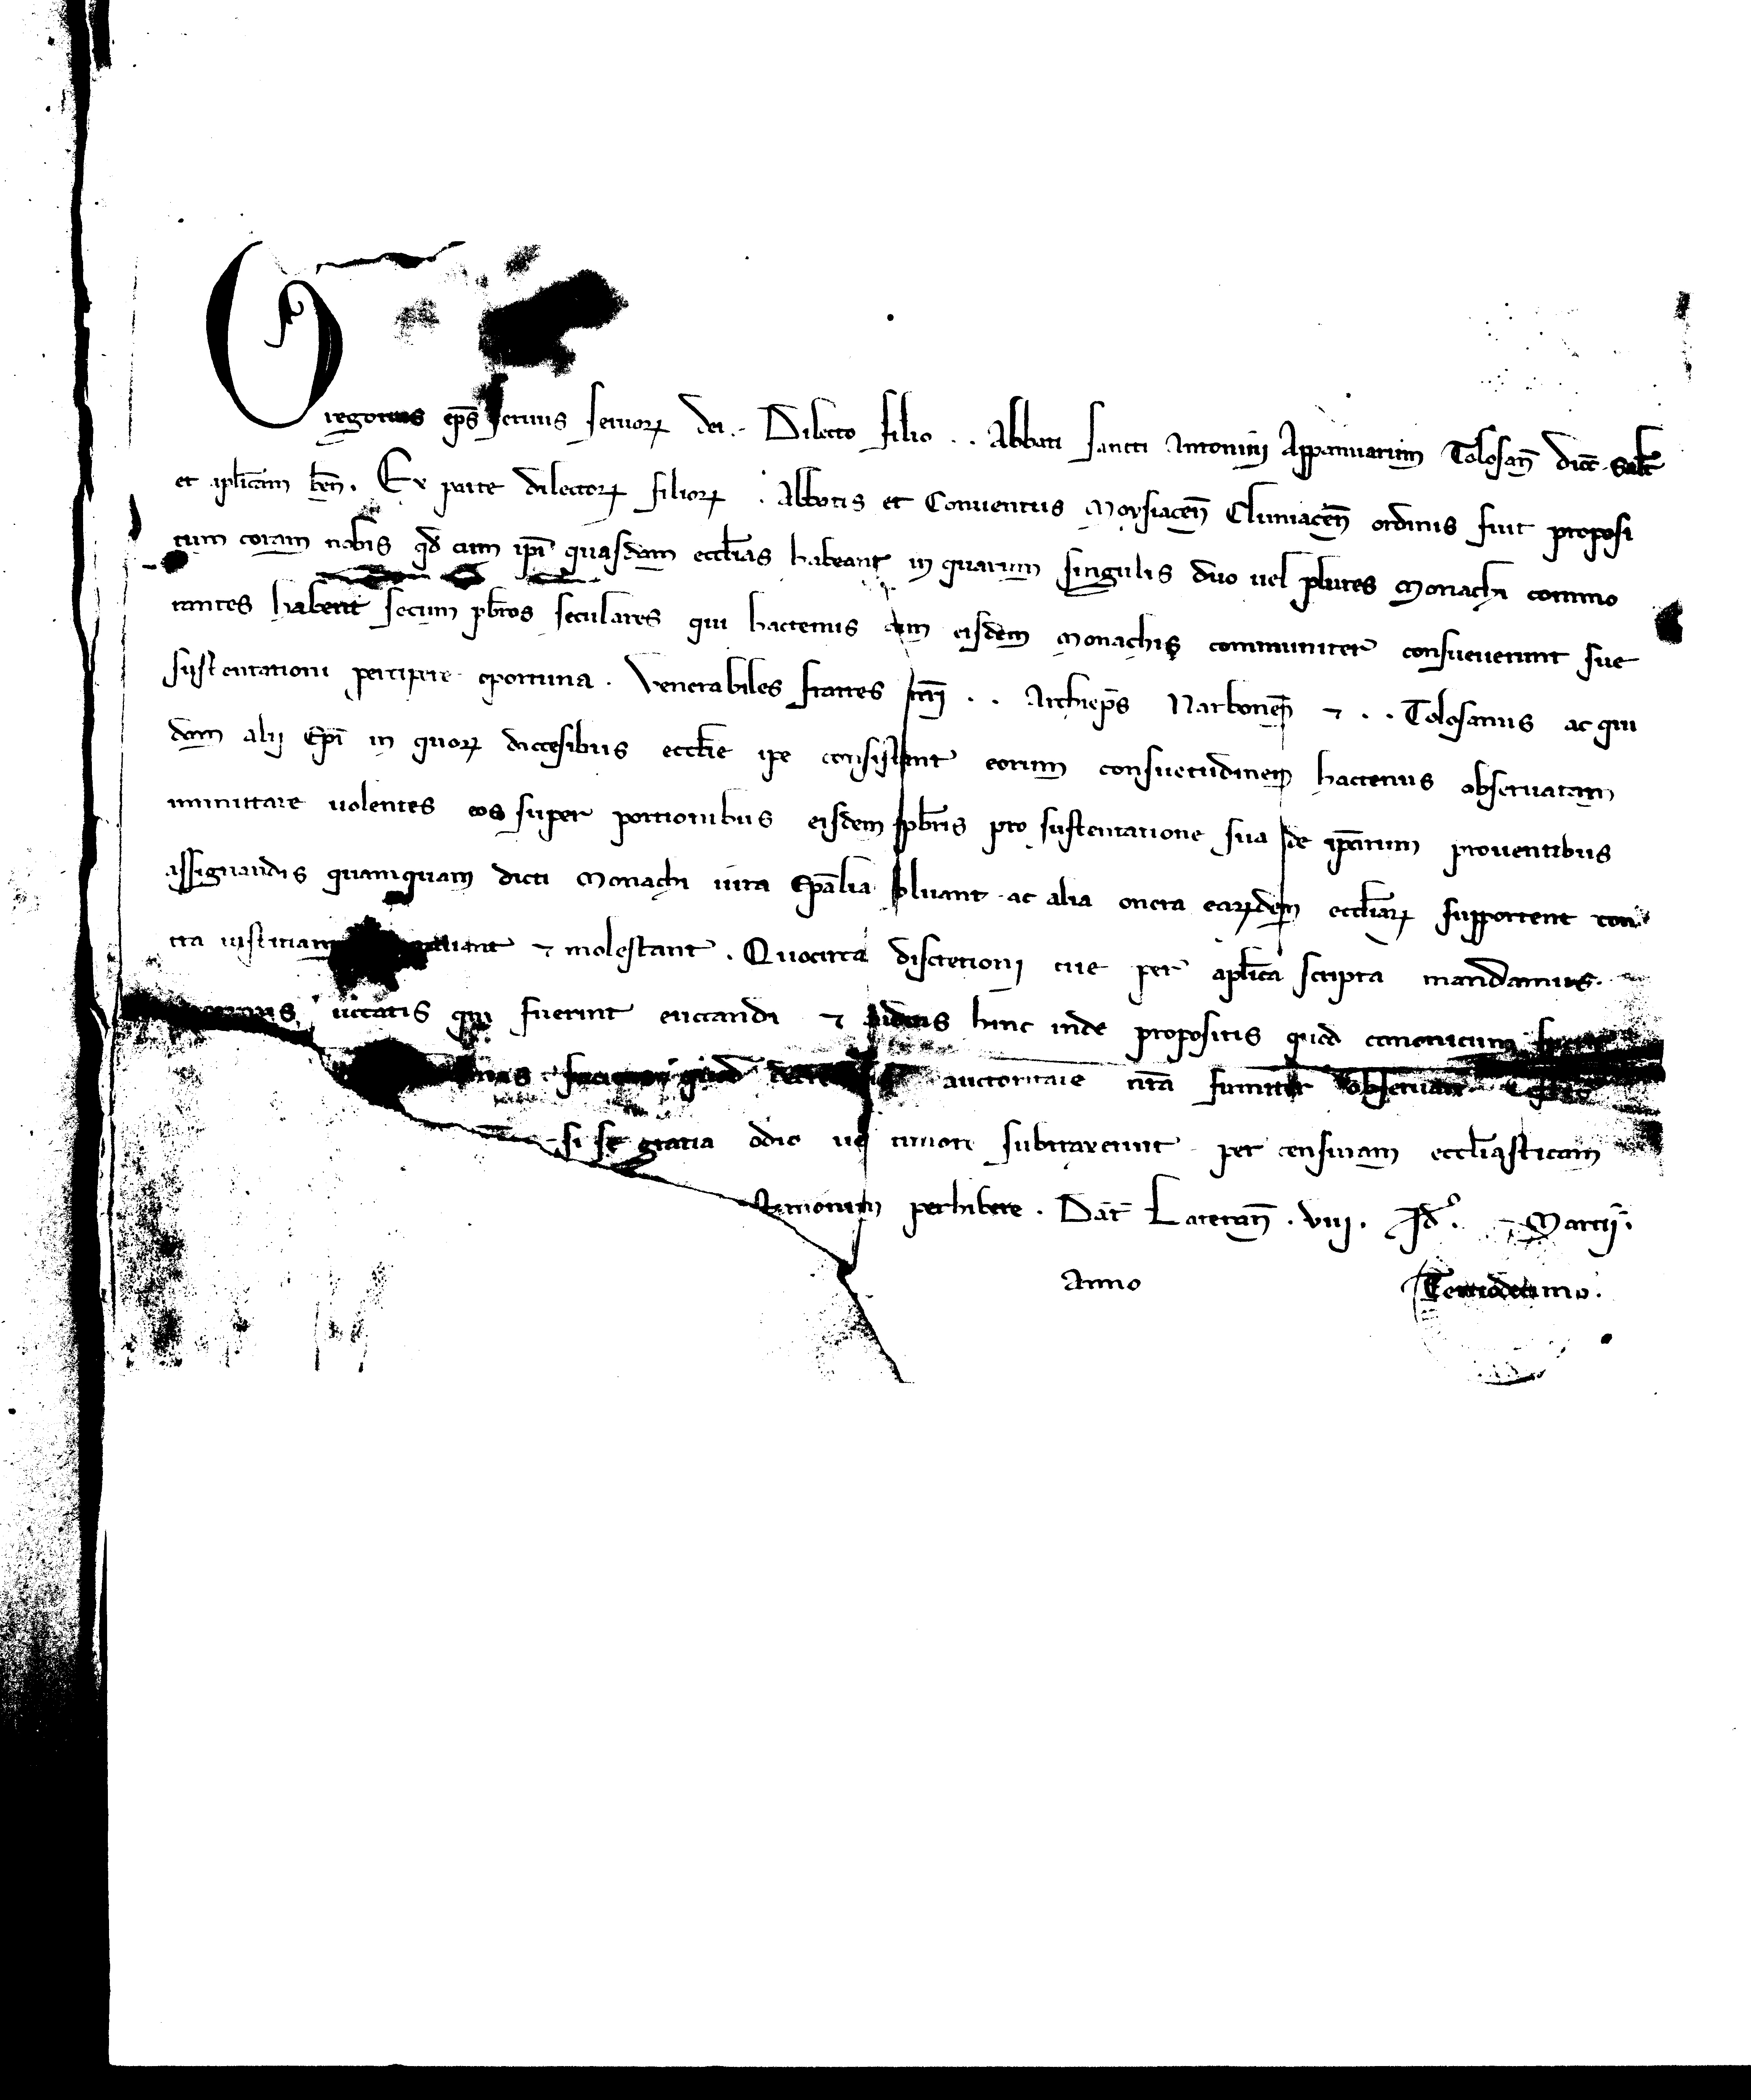 Gregorius ep̄s seruus seruoꝝ dei. Dilecto filio . . Abbati sancti Antonini Appamiarum Tolosan̄ dioc̄ salt̄
et aplicam ben̄. Ex parte dilectoꝝ filioꝝ . Abbatis et Conuentus Moysiacen̄ Cluniacen̄ ordinis fuit proposi
tum coram nobis qd̄ cum ip̄i quasdam ecclīas habeant in quarum singulis duo uel plures Monachi commo
rantes habent secum pb̄ros seculares qui hactenus cum eisdem Monachis communiter consueuerunt sue
sustentationi percipere oportuna . Venerabiles fratres nr̄i . . Archiep̄s Narbonen̄ ⁊ . . Tolosanus ac qui
dam alij Ep̄i in quoꝝ diocesibus ecclīe ipe consistunt eorum consuetudinem hactenus obseruatam
immutare uolentes eos super portionibus eisdem pb̄ris pro sustentatione sua de ip̄arum prouentibus
assignandis quamquam dicti Monachi iura Ep̄alia soluant ac alia onera eaꝝdem ecclīaꝝ supportent con
tra iustitiam ⁊ molestant . Quocirca discretioni tue per aplīca scripta mandamus
uocatis qui fuerint euocandi ⁊ auditis hinc inde propositis quod canonicum
faciens quod auctoritate nr̄a firmiter obseruari
si se gratia odio uel timore subtraxerint per censuram ecclīasticam
testimonium perhibere . Dat̄ Lateran̄ . viij . Id̄ . Martij .
Anno Tertiodecimo .